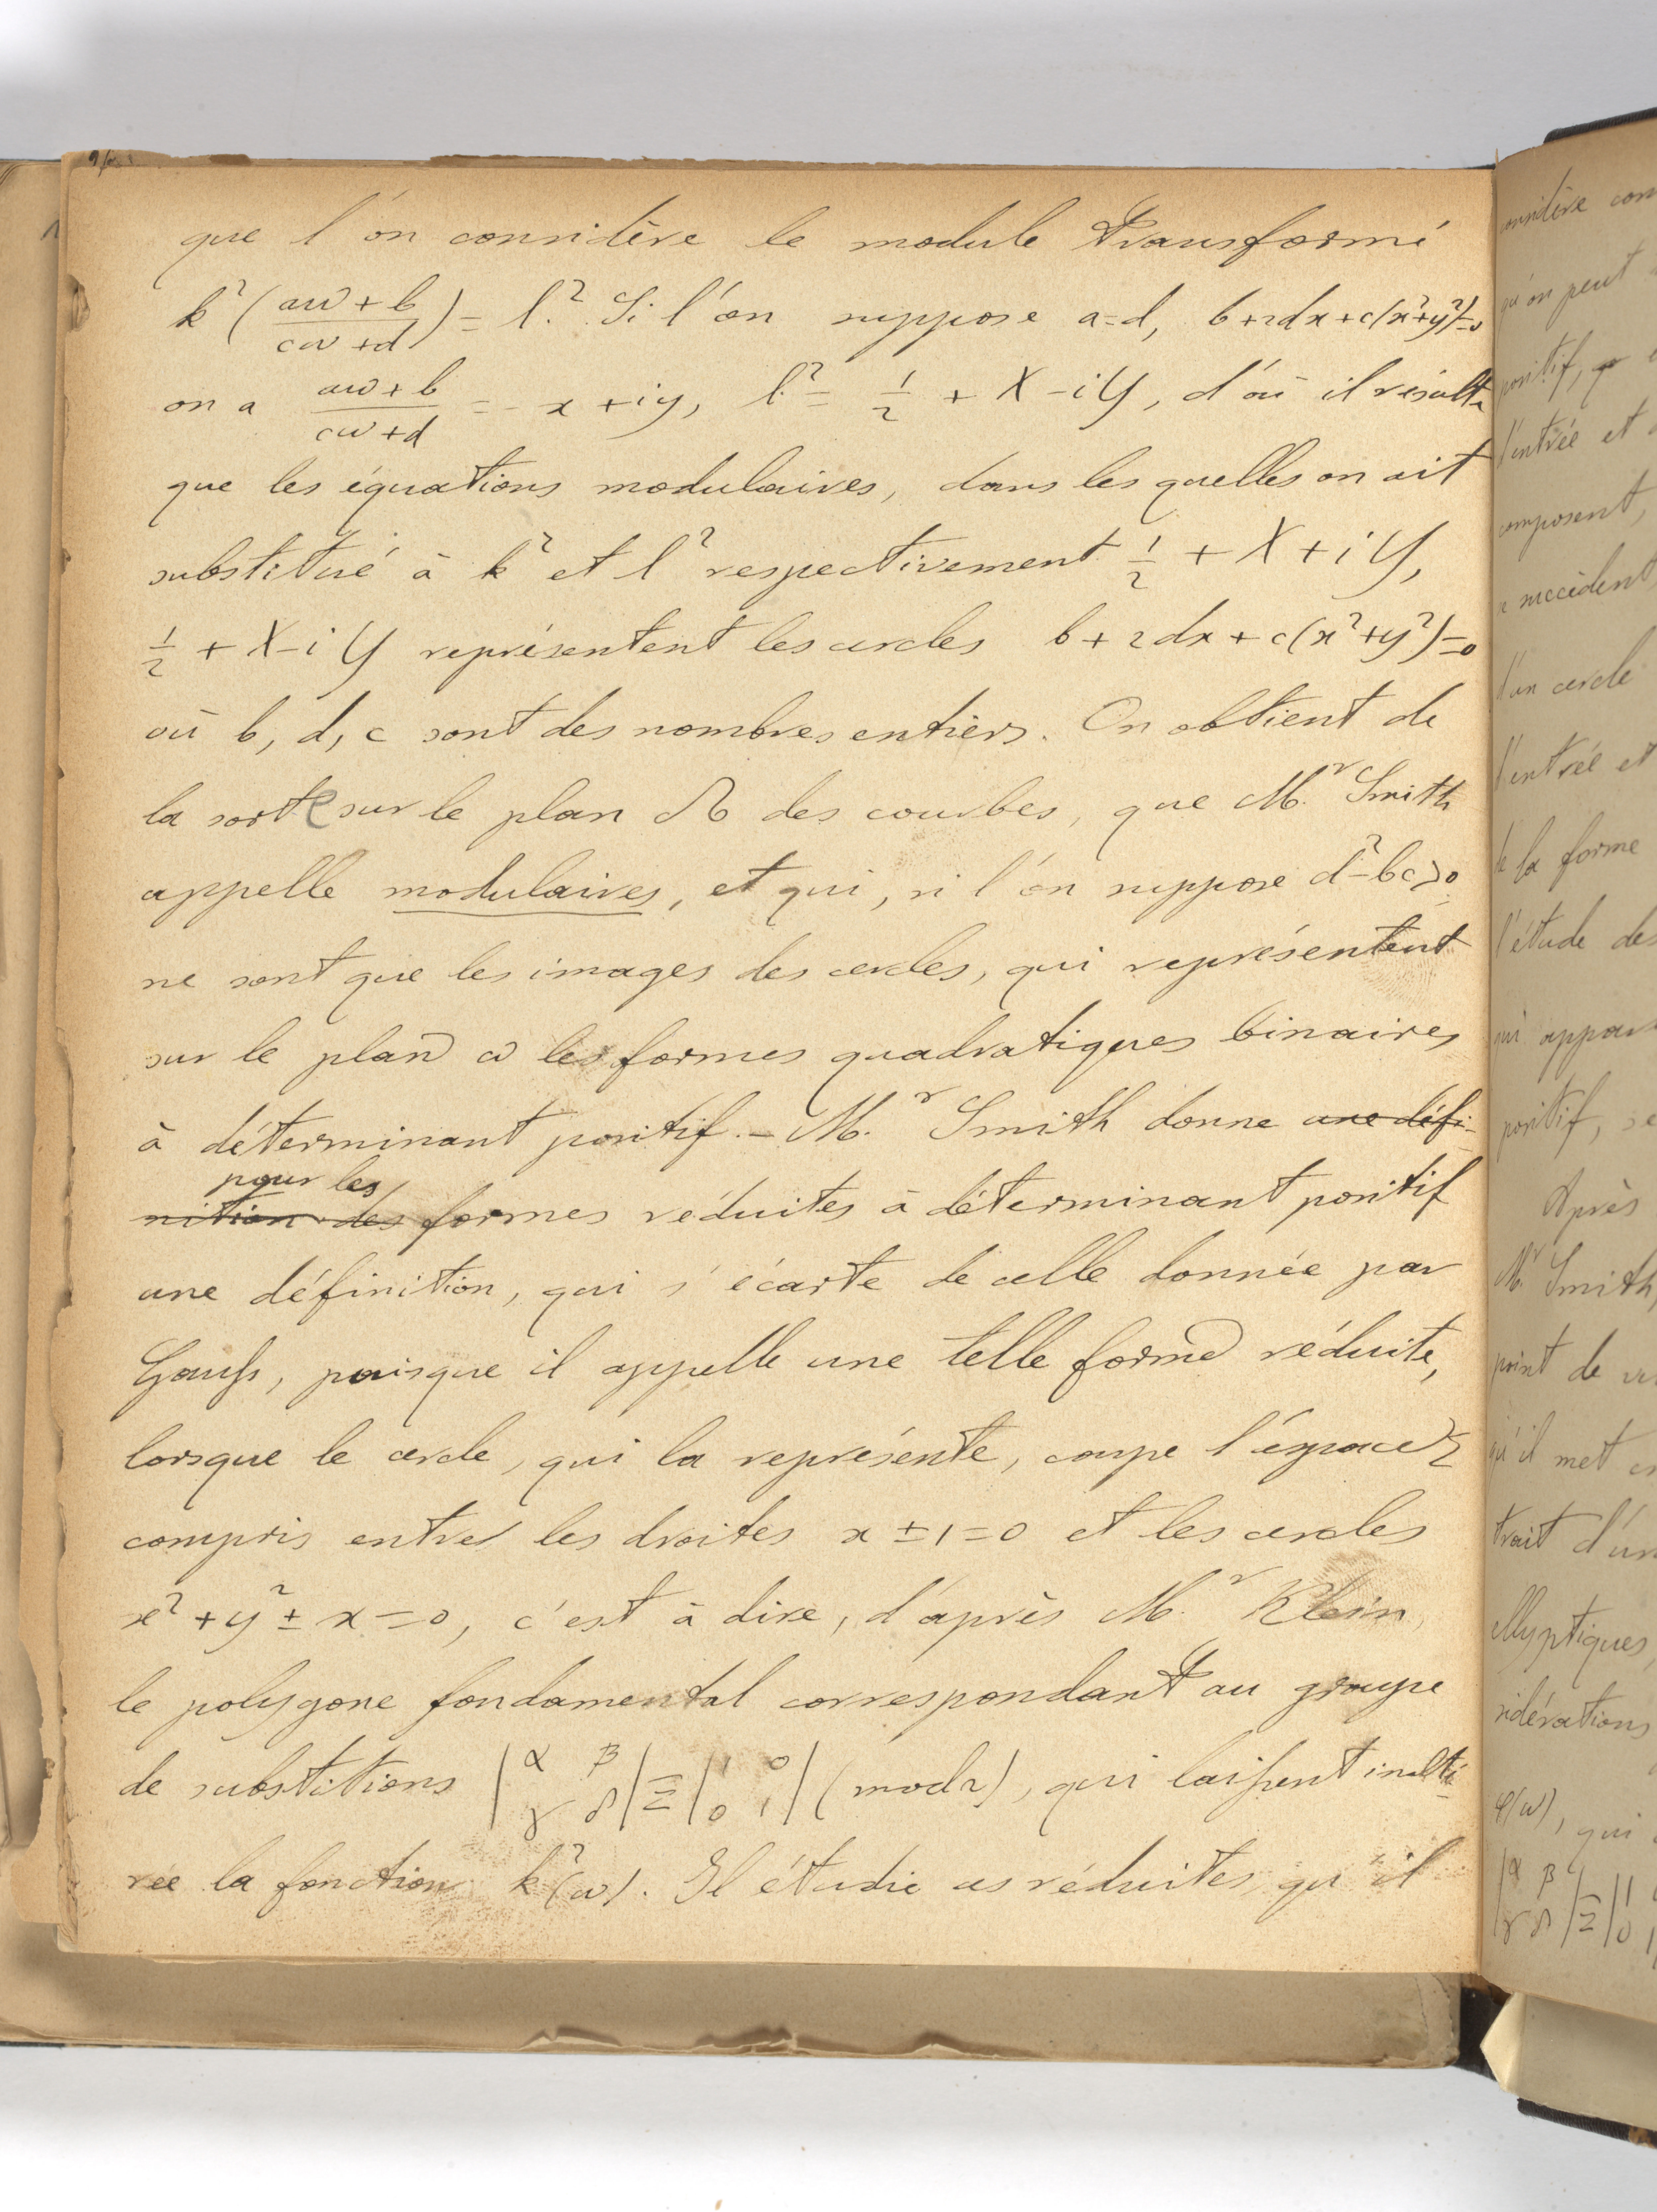 que l'on considère le module transformé
k²(aω+b / cω+d) = l². Si l'on suppose a=d, b+2dx+c(x²+y²)=0
on a aω+b / cω+d = -x+iy, l² = 1/2 + X-iY, d'où il résulte
que les équations modulaires, dans les quelles on ait
substitué à k² et l² respectivement 1/2 + X+iY,
1/2 + X-iY représentent les cercles b+2dx+c(x²+y²)=0
où b, d, c sont des nombres entiers. On obtient de
la sorte sur le plan Ω des courbes, que M.r Smith
appelle modulaires, et qui, si l'on suppose d²-bc>0
ne sont que les images des cercles, qui représentent
sur le plan ω les formes quadratiques binaires
à déterminant positif. – M.r Smith donne une défi-
pour les
nition des formes réduites à déterminant positif
une définition, qui s'écarte de celle donnée par
Gauss, puisque il appelle une telle forme réduite,
lorsque le cercle, qui la représente, coupe l'éspace Σ
compris entre les droites x ± 1 = 0 et les cercles
x² + y² ± x = 0, c'est à dire, d'après M.r Klein,
le polygone fondamental correspondant au groupe
de substitutions |α β γ δ| ≡ |1 0 0 1| (mod 2), qui laissent inalté-
rée la fonction k²(ω). Il étudie ces réduites, qu'il
onsidère com
qu'on peut
positif,
l'entrée et
composent,
succèdent
d'un cercle
l'entrée et
de la forme
l'étude des
qui appar
positif, se
Après
M.r Smith,
point de vu
qu'il met en
trait d'un
ellyptiques,
sidérations
φ(ω), qui
|α β γ δ| ≡ |1 0 1